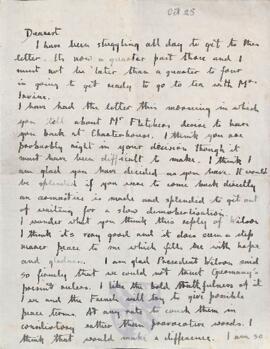 Oct 25
Dearest
I have been struggling all day to get to this
letter. Its now a quarter past three and I
must not be later than a quarter to four
in going to get ready to go to tea with Mrs
Irvine.
I have had the letter this morning in which
you tell about Mr Fletchers desire to have
you back at Charterhouse. I think you are
probably right in your decision though it
must have been difficult to make. I think I
am glad you have decided as you have. It would
be splendid if you were to come back directly
an armistice is made and splendid to get out
of waiting for a slow demobilisation.
I wonder what you think this reply of Wilson
I think it's very good and it does seem a step
nearer peace to me which fills me with hope
and gladness. I am glad President Wilson said
so firmly that we could not trust Germany's
present rulers. I like the bold truthfulness of it
I and the French will try to give possible
peace terms. At any rate to couch them in
conciliatory rather than provocative words. I
think that would make a difference. I am so